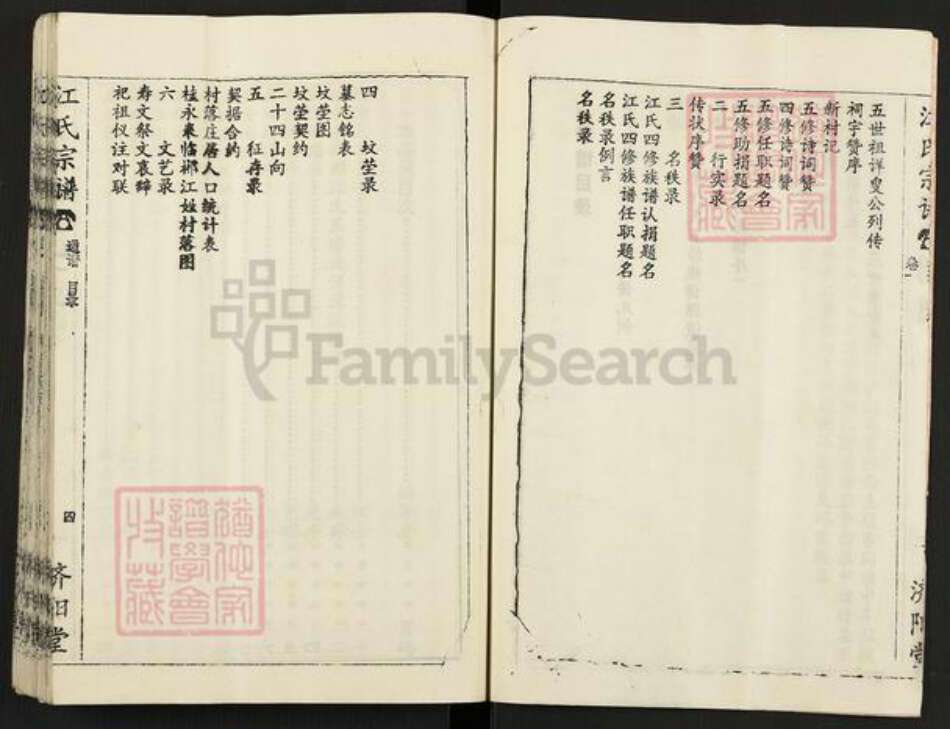 江氏宗谱
卷一
济阳堂
五世祖详叟公列传
祠宇赞序
新村记
五修诗词赞
四修诗词赞
五修任职题名
五修助捐题名
二 行实录
传状序赞
三 名秩录
江氏四修族谱认捐题名
江氏四修族谱任职题名
名秩录例言
名秩录
四 坟茔录
墓志铭表
坟茔图
坟茔契约
二十四山向
五 征存录
契据合约
村落庄居人口统计表
桂永来临郴江姓村落图
六 文艺录
寿文祭文哀辞
祀祖仪注对联
江氏宗谱
通谱 目录
四
济阳堂
FamilySearch
谱学会
收藏